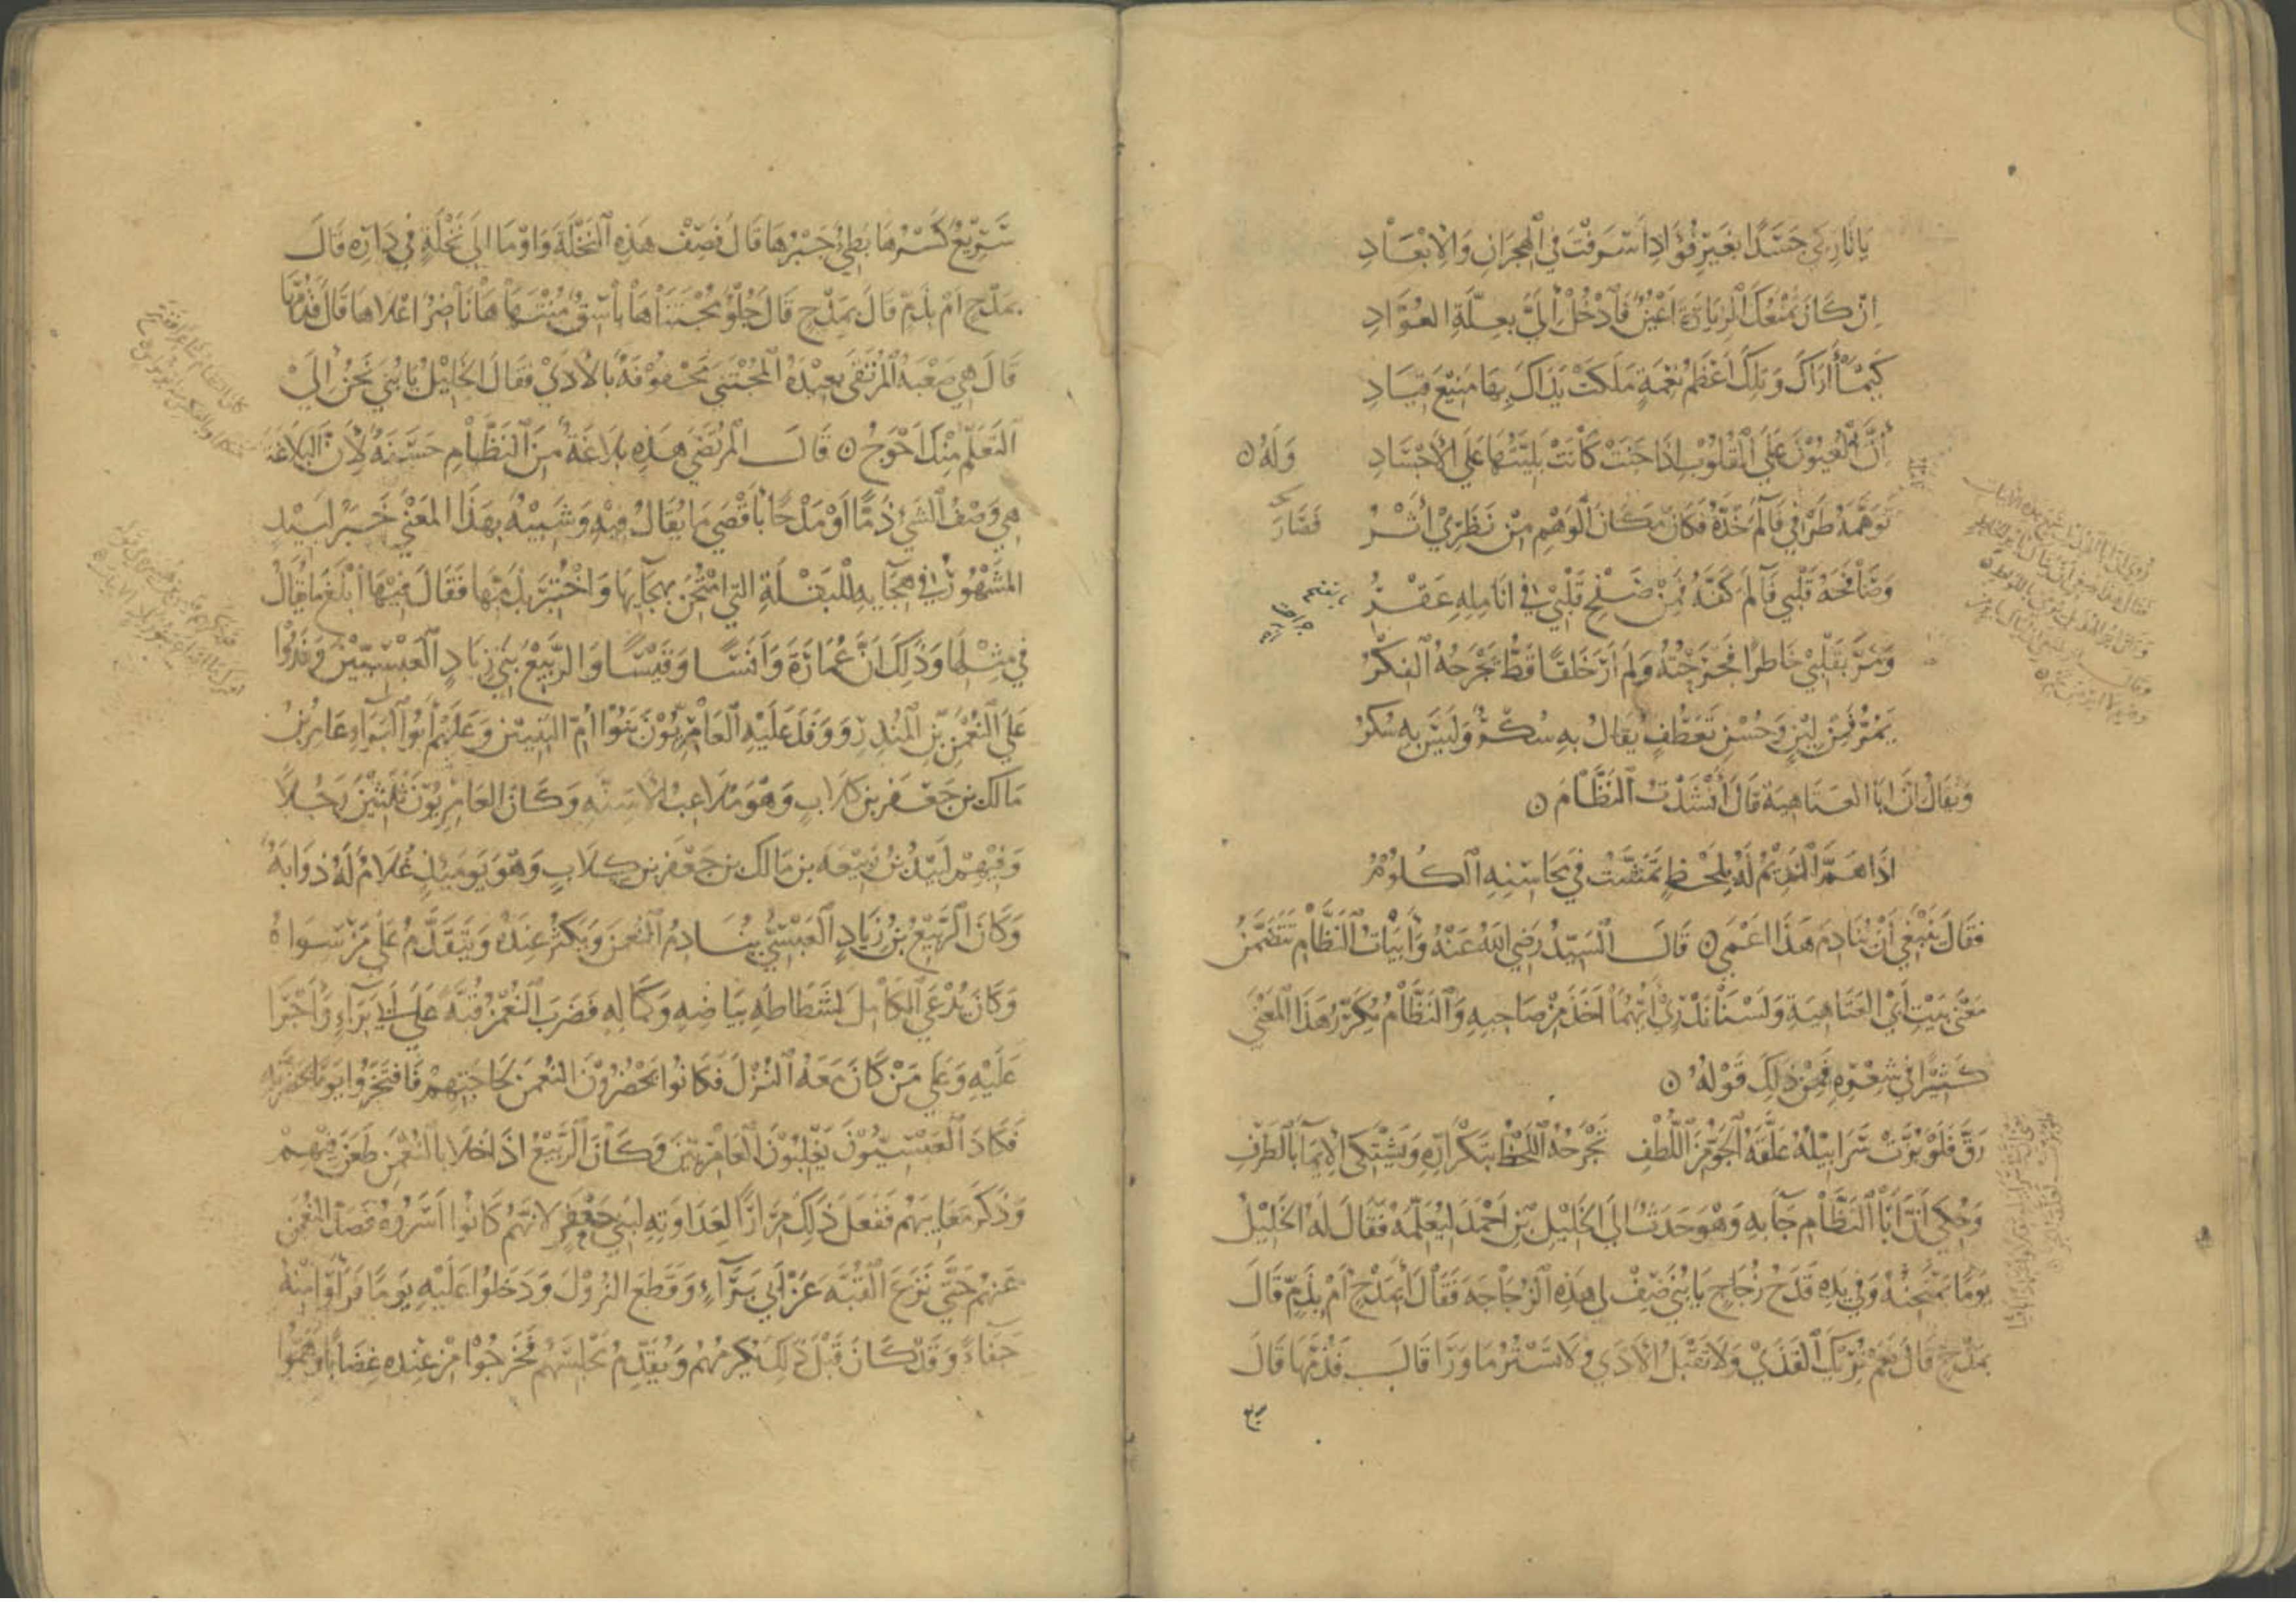 يَا تَارِكِي جَسَدًا بِغَيْرِ فُؤَادِ أَسْرَفْتَ فِي الْهِجْرَانِ وَالْإِبْعَادِ
إِنْ كَانَ يَمْنَعُكَ الزِّيَارَةَ أَعْيُنٌ فَادْخُلْ إِلَيَّ بِعِلَّةِ الْعُوَّادِ
كَيْمَا أَرَاكَ وَتِلْكَ أَعْظَمُ نِعْمَةٍ مَلَكَتْ يَدَاكَ بِهَا مَنِيعَ قِيَادِ
إِنَّ الْعُيُونَ عَلَى الْقُلُوبِ إِذَا جَنَتْ كَانَتْ بَلِيَّتُهَا عَلَى الْأَجْسَادِ وَلَهُ
تَوَهَّمَهُ طَرْفِي فَآلَمَ خَدَّهُ فَكَانَ مَكَانَ الْوَهْمِ مِنْ نَظَرِي أَثْرُ فَصَارَ
وَصَافَحَهُ قَلْبِي فَآلَمَ كَفَّهُ فَمِنْ صَفْحِ قَلْبِي فِي أَنَامِلِهِ عَقْرُ
وَمَرَّ بِقَلْبِي خَاطِرًا فَجَرَحْتُهُ وَلَمْ أَرَ خَلْقًا قَطُّ يَجْرَحُهُ الْفِكْرُ
يَمُرُّ فَمِنْ لِينٍ وَحُسْنِ تَعَطُّفٍ يُقَالُ بِهِ سُكْرٌ وَلَيْسَ بِهِ سُكْرُ
وَيُقَالُ إِنَّ أَبَا الْعَتَاهِيَةِ قَالَ أَنْشَدْتُ النَّظَّامَ
إِذَا هَمَّ النَّدِيمُ لَهُ بِلَحْظٍ تَمَشَّتْ فِي مَحَاسِنِهِ الْكُلُومُ
فَقَالَ يَنْبَغِي أَنْ يُنَادِمَ هَذَا أَعْمَى قَالَ السَّيِّدُ رَضِيَ اللهُ عَنْهُ وَأَبْيَاتُ النَّظَّامِ تَتَضَمَّنُ
مَعْنَى بَيْتِ أَبِي الْعَتَاهِيَةِ وَلَسْنَا نَدْرِي أَيُّهُمَا أَخَذَ مِنْ صَاحِبِهِ وَالنَّظَّامُ يُكَرِّرُ هَذَا الْمَعْنَى
كَثِيرًا فِي شِعْرِهِ فَمِنْ ذَلِكَ قَوْلُهُ
رَقَّ فَلَوْ بُزَّتْ سَرَابِيلُهُ عَلَّقَهُ الْجَوُّ مِنَ اللُّطْفِ يَجْرَحُهُ اللَّحْظُ بِتَكْرَارِهِ وَيَشْتَكِي الْإِيمَاءَ بِالطَّرْفِ
وَحُكِيَ أَنَّ أَبَا النَّظَّامِ جَاءَ بِهِ وَهْوَ حَدَثٌ إِلَى الْخَلِيلِ بْنِ أَحْمَدَ لِيُعَلِّمَهُ فَقَالَ لَهُ الْخَلِيلُ
يَوْمًا يَمْتَحِنُهُ وَفِي يَدِهِ قَدَحُ زُجَاجٍ يَا بُنَيَّ صِفْ لِي هَذِهِ الزُّجَاجَةَ فَقَالَ أَبِمَدْحٍ أَمْ بِذَمٍّ قَالَ
بِمَدْحٍ قَالَ نَعَمْ تُرِيكَ الْقَذَى وَلَا تَقْبَلُ الْأَذَى وَلَا تَسْتُرُ مَا وَرَا قَالَ فَذُمَّهَا قَالَ
سَرِيعٌ كَسْرُهَا بَطِيءٌ جَبْرُهَا قَالَ فَصِفْ هَذِهِ النَّخْلَةَ وَأَوْمَا إِلَى نَخْلَةٍ فِي دَارِهِ قَالَ
بِمَدْحٍ أَمْ بِذَمٍّ قَالَ بِمَدْحٍ قَالَ حُلْوٌ مُجْتَنَاهَا بَاسِقٌ مُنْتَهَاهَا نَاضِرٌ أَعْلَاهَا قَالَ فَذُمَّهَا
قَالَ هِيَ صَعْبَةُ الْمُرْتَقَى بَعِيدَةُ الْمُجْتَنَى مَحْفُوفَةٌ بِالْأَذَى فَقَالَ الْخَلِيلُ يَا بُنَيَّ نَحْنُ إِلَى
التَّعَلُّمِ مِنْكَ أَحْوَجُ قَالَ الْمُرْتَضَى هَذِهِ بَلَاغَةٌ مِنَ النَّظَّامِ حَسَنَةٌ لِأَنَّ الْبَلَاغَةَ
هِيَ وَصْفُ الشَّيْءِ ذَمًّا أَوْ مَدْحًا بِأَقْصَى مَا يُقَالُ فِيهِ وَشَبِيهٌ بِهَذَا الْمَعْنَى خَبَرُ لَبِيدٍ
الْمَشْهُورُ فِي هِجَائِهِ لِلْبَقْلَةِ الَّتِي امْتُحِنَ بِهِجَائِهَا وَاخْتُبِرَ بِذَمِّهَا فَقَالَ فِيهَا أَبْلَغَ مَا يُقَالُ
فِي مِثْلِهَا وَذَلِكَ أَنَّ عُمَارَةَ وَأَنَسًا وَقَيْسًا وَالرَّبِيعَ بَنِي زِيَادٍ الْعَبْسِيِّينَ وَفَدُوا
عَلَى النُّعْمَنِ بْنِ الْمُنْذِرِ وَوَفَدَ عَلَيْهِ الْعَامِرِيُّونَ بَنُوا أُمِّ الْبَنِينَ وَعَلَيْهِمْ أَبُو الْبَرَاءِ عَامِرُ بْنُ
مَالِكِ بْنِ جَعْفَرِ بْنِ كِلَابٍ وَهْوَ مُلَاعِبُ الْأَسِنَّةِ وَكَانَ الْعَامِرِيُّونَ ثَلَثِينَ رَجُلًا
وَفِيهِمْ لَبِيدُ بْنُ رَبِيعَةَ بْنِ مَالِكِ بْنِ جَعْفَرِ بْنِ كِلَابٍ وَهْوَ يَوْمَئِذٍ غُلَامٌ لَهُ ذُوَابَةٌ
وَكَانَ الرَّبِيعُ بْنُ زِيَادٍ الْعَبْسِيُّ يُنَادِمُ النُّعْمَنَ وَيَكْثُرُ عِنْدَهُ وَيَتَقَدَّمُ عَلَى مَنْ سِوَاهُ
وَكَانَ يُدْعَى الْكَامِلَ لِشَطَاطِهِ بَيَاضِهِ وَكَمَالِهِ فَضَرَبَ النُّعْمَنُ قُبَّةً عَلَى أَبِي بَرَاءٍ وَأَجْرَا
عَلَيْهِ وَعَلَى مَنْ كَانَ مَعَهُ النُّزُلَ فَكَانُوا يَحْضُرُونَ النُّعْمَنَ لِحَاجَتِهِمْ فَافْتَخَرُوا يَوْمًا بِحَضْرَتِهِ
فَكَادَ الْعَبْسِيُّونَ يَغْلِبُونَ الْعَامِرِيِّينَ وَكَانَ الرَّبِيعُ إِذَا خَلَا بِالنُّعْمَنِ طَعَنَ فِيهِمْ
وَذَكَرَ مَعَايِبَهُمْ فَفَعَلَ ذَلِكَ مِرَارًا لِعَدَاوَتِهِ لِبَنِي جَعْفَرٍ لِأَنَّهُمْ كَانُوا أَسَرُوهُ فَصَدَّ النُّعْمَنَ
عَنْهُمْ حَتَّى نَزَعَ الْقُبَّةَ عَنْ أَبِي بَرَاءٍ وَقَطَعَ النُّزُلَ وَدَخَلُوا عَلَيْهِ يَوْمًا فَرَأَوْا مِنْهُ
جَفَاءً وَقَدْ كَانَ قَبْلَ ذَلِكَ يُكْرِمُهُمْ وَيُقَدِّمُ مَجْلِسَهُمْ فَخَرَجُوا مِنْ عِنْدِهِ غِضَابًا وَهَمُّوا